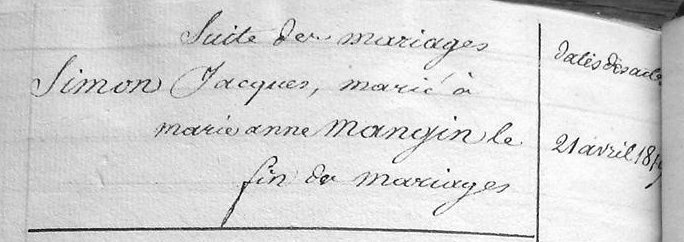 Suite des mariages
Dates des actes
Simon Jacques, marié à
marie anne Mangin le
21 avril
fin des mariages